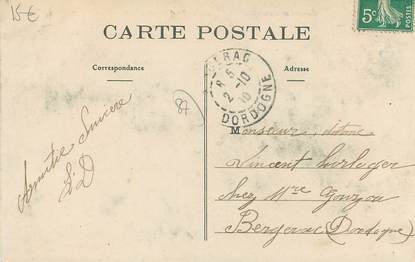 15€
5c
CARTE POSTALE
Correspondance
Adresse
DORDOGNE
87
Amitié Sincère
Monsieur
Vincent horloger
chez Mre
Bergerac (Dordogne)